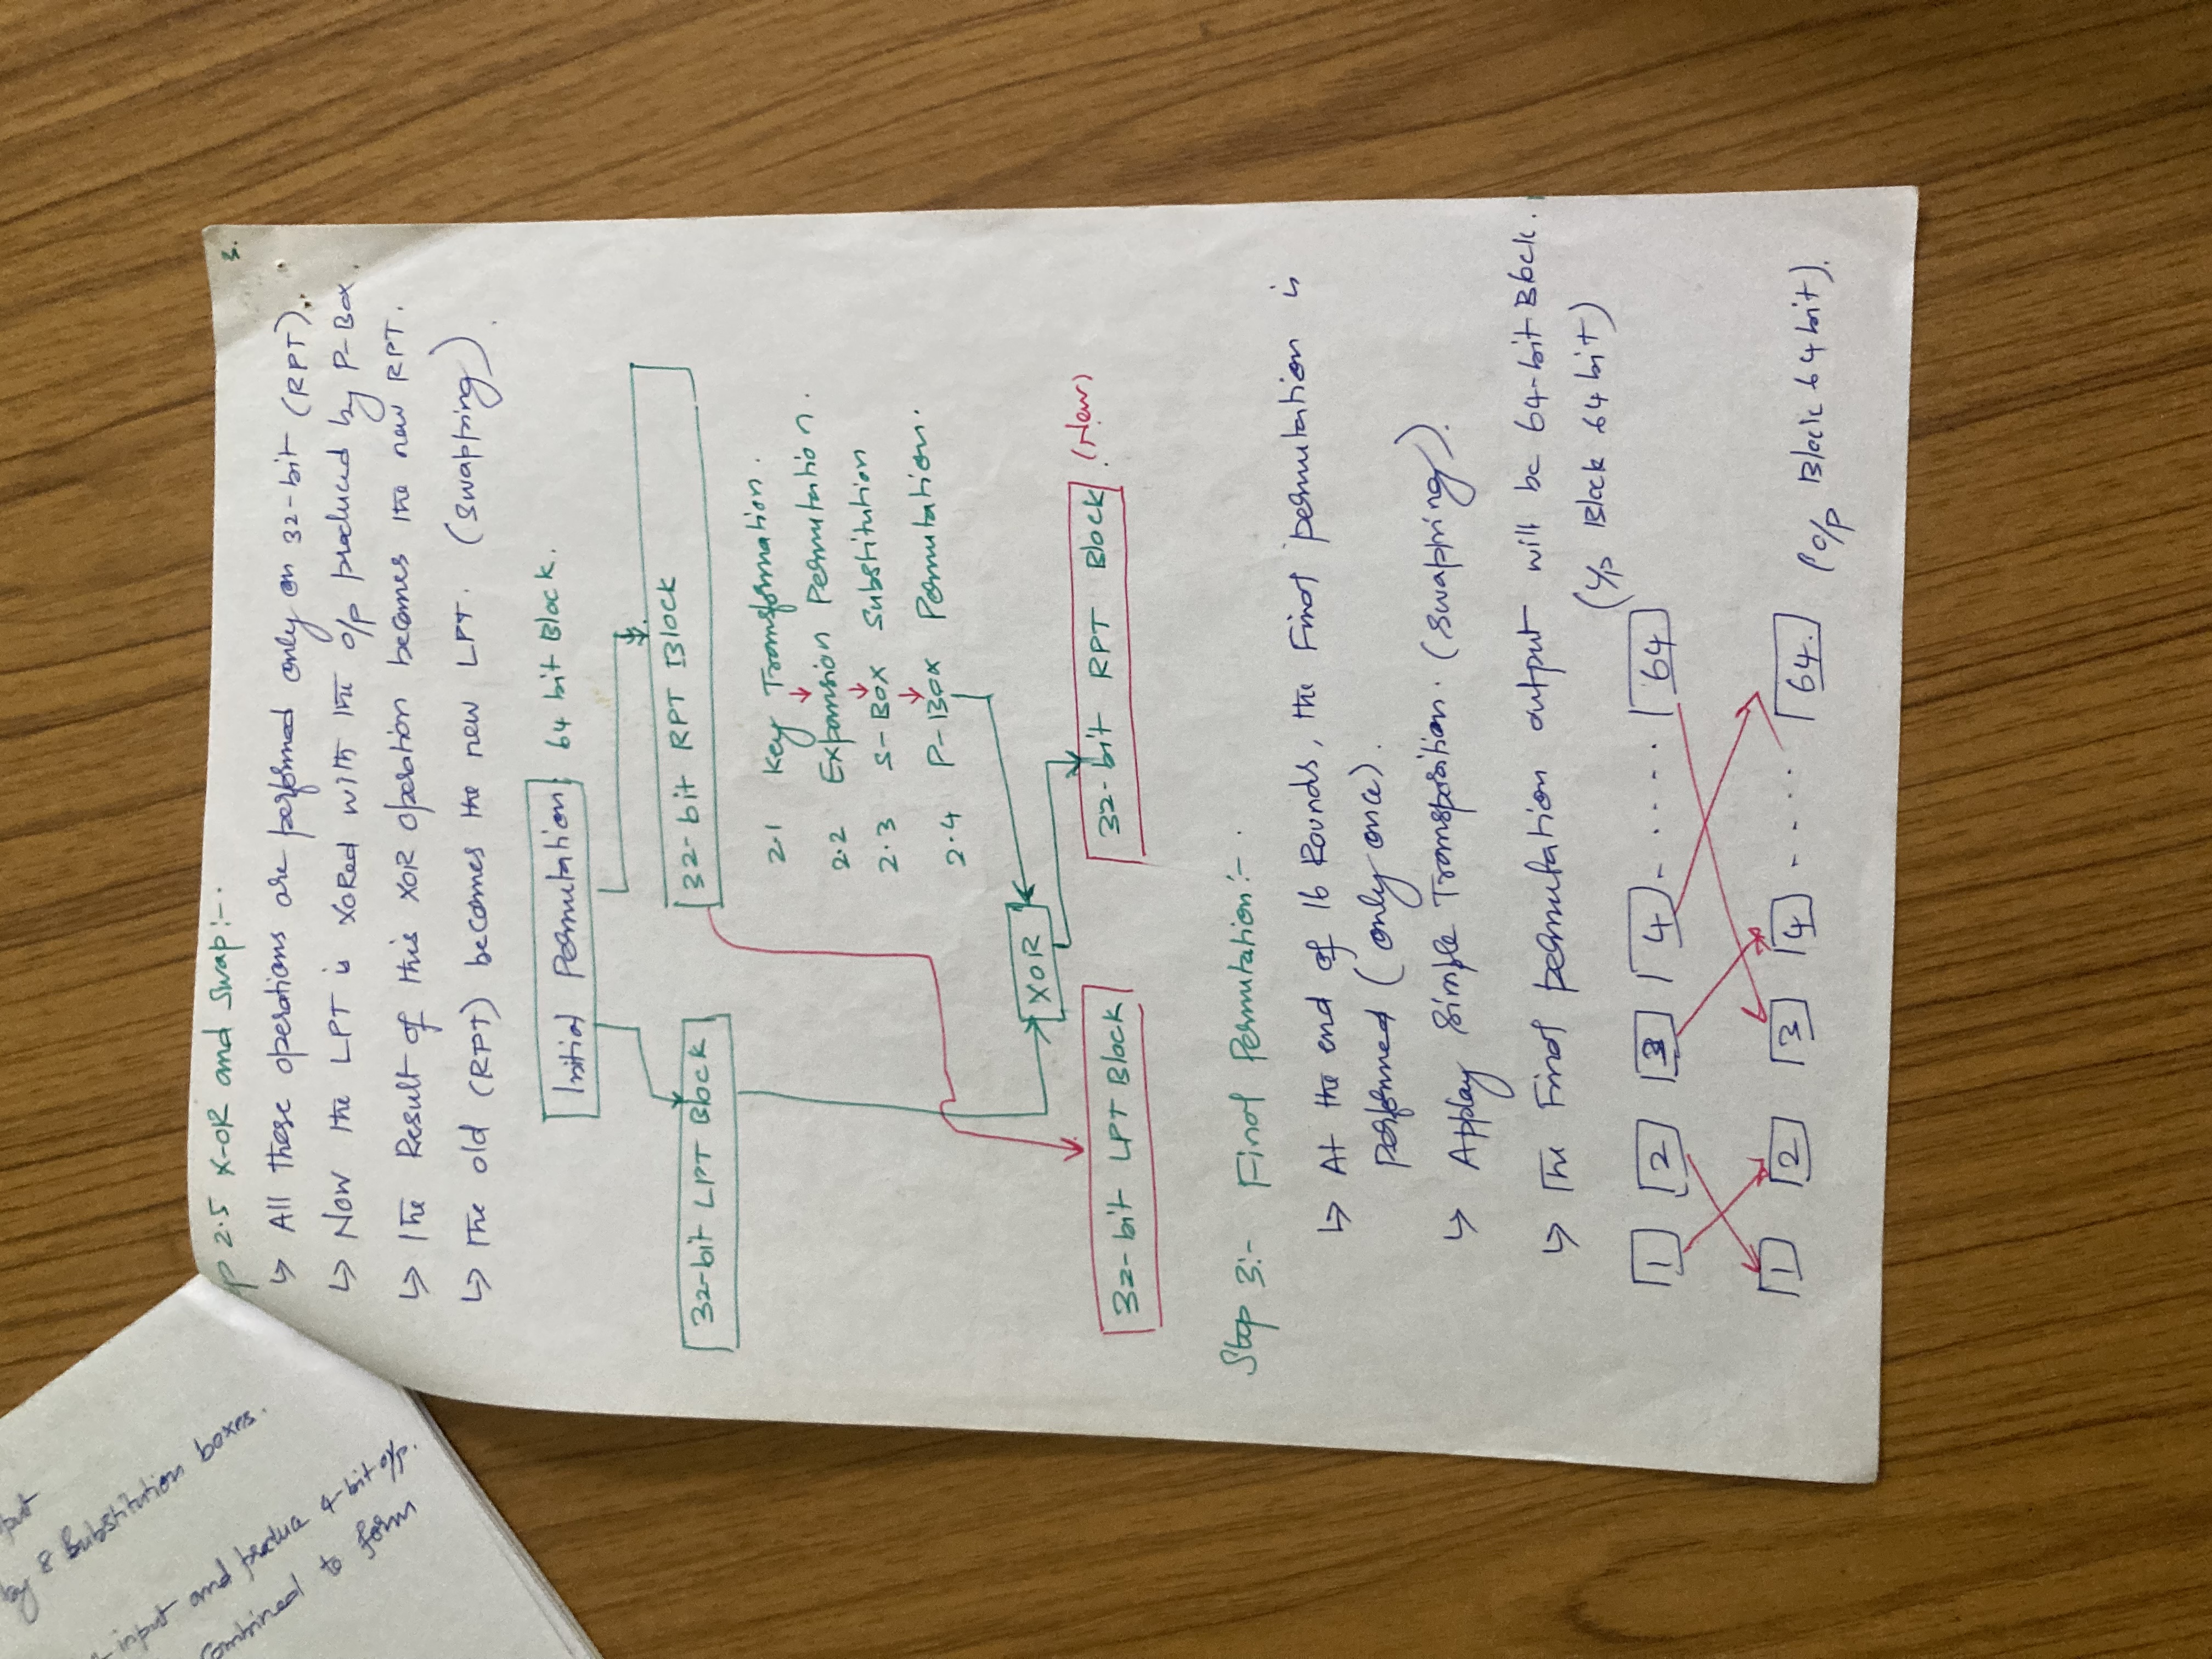 put
by 8 Substitution boxes.
input and produce 4-bit o/p.
combined to form
p 2.5 X-OR and Swap:-.
3.
↳ All these operations are performed only on 32-bit (RPT).
↳ Now the LPT is XORed with the o/p produced by P-Box.
↳ The Result of this XOR operation becomes the new RPT.
↳ The old (RPT) becomes the new LPT. (Swapping).
Initial Permutation 64 bit Block.
32-bit LPT Block
32-bit RPT Block
2.1 Key Transformation.
2.2 Expansion Permutation.
2.3 S-Box Substitution
2.4 P-Box Permutation.
XOR
32-bit LPT Block
32-bit RPT Block (New)
Step 3:- Final Permutation:-.
↳ At the end of 16 Rounds, the Final permutation is
performed (only once).
↳ Applay Simple Transposition. (Swapping).
↳ The Final permutation output will be 64-bit Block.
(I/p Block 64 bit)
1 2 3 4 - ..... 64
1 2 3 4 - .... 64.
(o/p Block 64 bit).